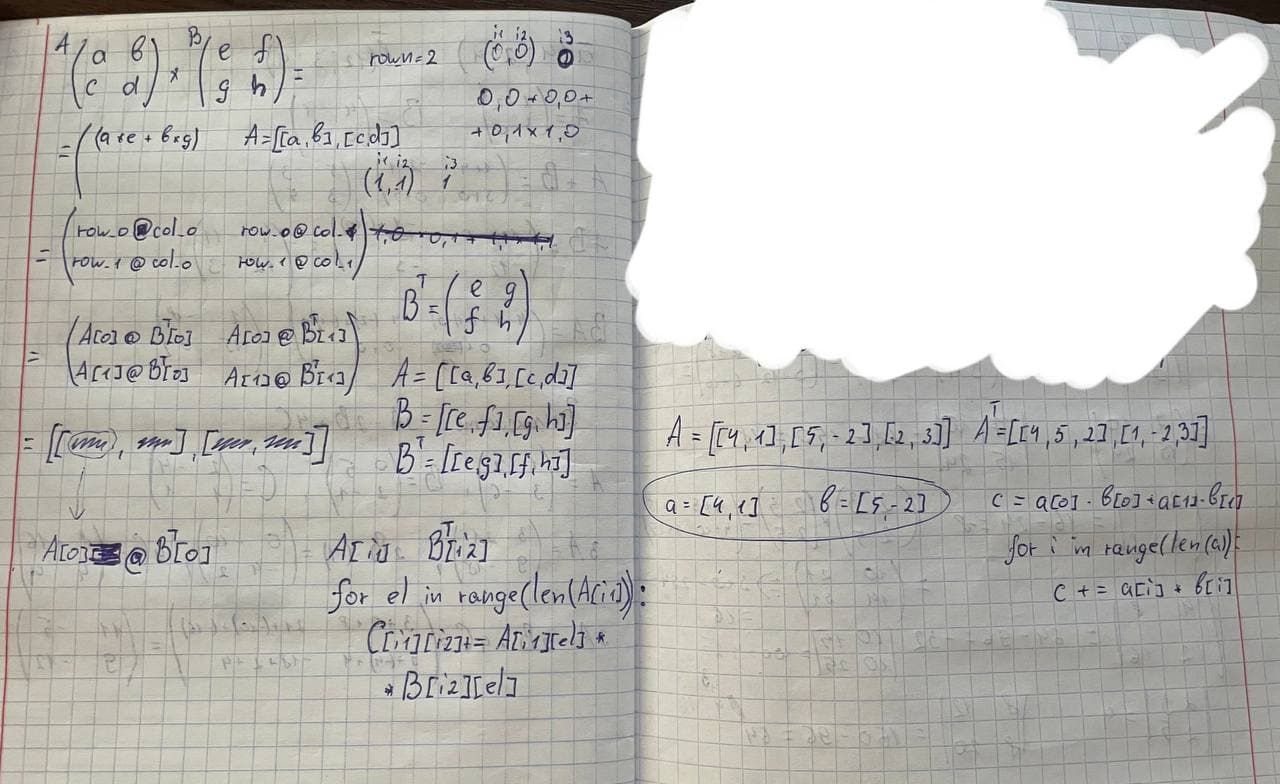 A (a в
c d) × B (e f
g h) =
rown=2
i1 i2 i3
(0,0) 0
0,0 * 0,0 +
+ 0,1 × 1,0
= ((a*e + в*g)
A=[[a,в],[c,d]]
i1 i2 i3
(1,1) 1
= (row_0 @ col_0 row_0 @ col_1
row_1 @ col_0 row_1 @ col_1)
Bᵀ = (e g
f h)
= (A[0] @ Bᵀ[0] A[0] @ Bᵀ[1]
A[1] @ Bᵀ[0] A[1] @ Bᵀ[1])
A = [[a,в],[c,d]]
B = [[e,f],[g,h]]
Bᵀ = [[e,g],[f,h]]
= [[ , ], [ , ]]
A[0] @ Bᵀ[0]
A[i1] Bᵀ[i2]
for el in range(len(A[i1])):
C[i1][i2] += A[i1][el] *
* B[i2][el]
A = [[4,1],[5,-2],[2,3]] Aᵀ=[[4,5,2],[1,-2,3]]
a = [4,1] в = [5,-2]
c = a[0] · в[0] + a[1] · в[1]
for i in range(len(a)):
c += a[i] * в[i]